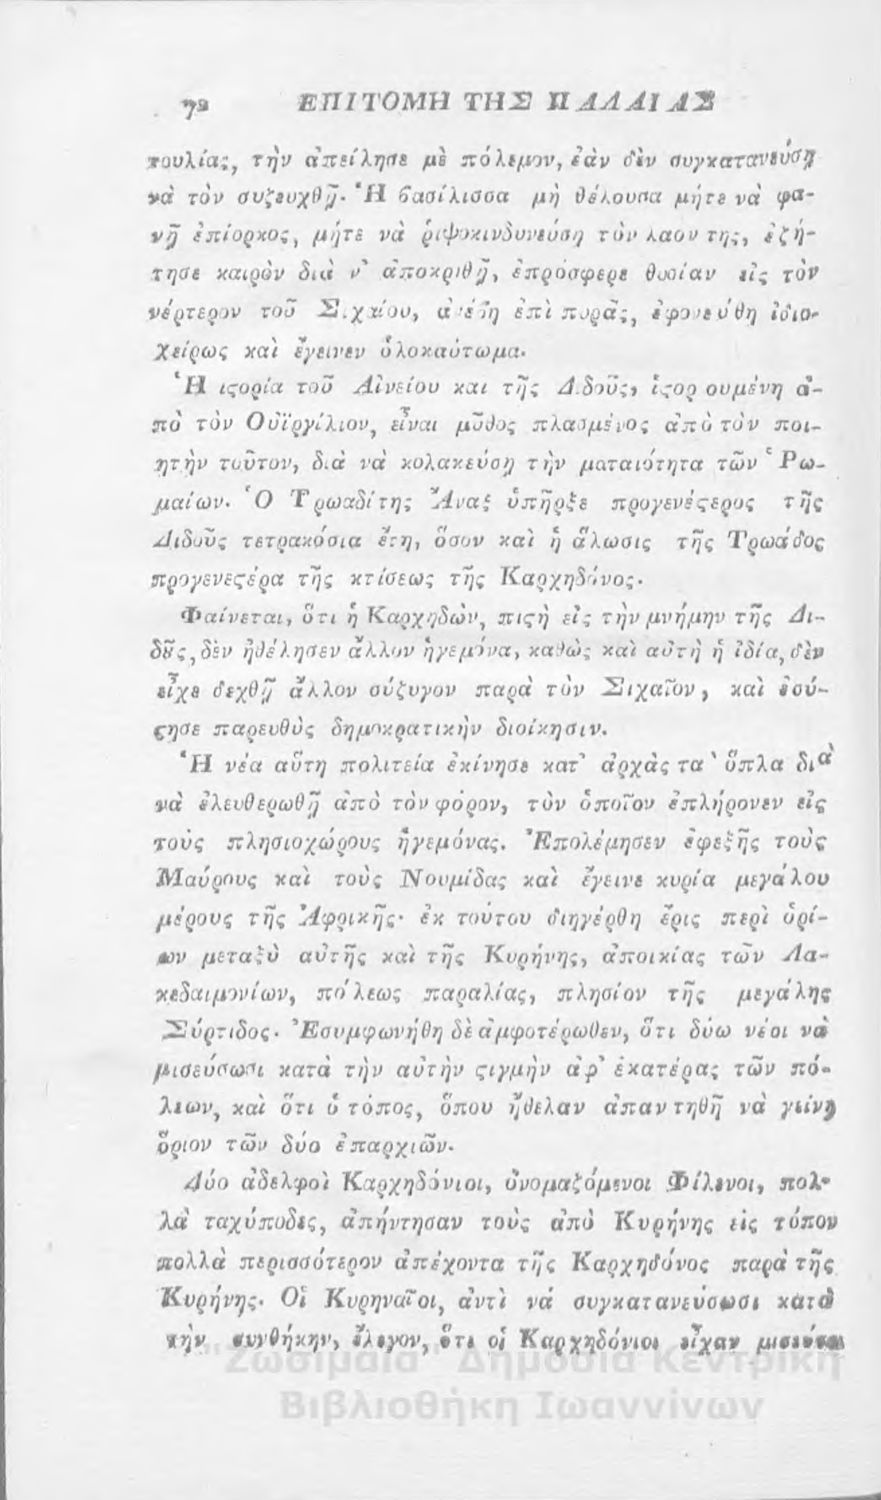 72 ΕΠΙΤΟΜΗ ΤΗΣ ΠΑΛΑΙΑΣ
τουλίας, τὴν ἀπείλησε μὲ πόλεμον, ἐὰν δὲν συγκατανεύσῃ
νὰ τὸν συζευχθῇ· Ἡ βασίλισσα μὴ θέλουσα μήτε νὰ φα-
νῇ ἐπίορκος, μήτε νὰ ῥιψοκινδυνεύσῃ τὸν λαον της, ἐζή-
τησε καιρὸν διὰ ν' ἀποκριθῇ, ἐπρόσφερε θυσίαν εἰς τὸν
νέρτερον τοῦ Σιχαίου, ἀνέβη ἐπὶ πυρᾶς, ἐφονεύθη ἰδιο-
χείρως καὶ ἔγεινεν ὁλοκαύτωμα·
Ἡ ιϛορία τοῦ Αἰνείου και τῆς Διδοῦς, ἱϛορουμένη ἀ-
πὸ τὸν Οὐϊργίλιον, εἶναι μῦθος πλασμένος ἀπὸ τὸν ποι-
ητὴν τοῦτον, διὰ νὰ κολακεύσῃ τὴν ματαιότητα τῶν Ῥω-
μαίων· Ὁ Τρωαδίτης Ἄναξ ὑπῆρξε προγενέϛερος τῆς
Διδοῦς τετρακόσια ἔτη, ὅσον καὶ ἡ ἅλωσις τῆς Τρωάδος
προγενεϛέρα τῆς κτίσεως τῆς Καρχηδόνος·
Φαίνεται, ὅτι ἡ Καρχηδὼν, πιϛὴ εἰς τὴν μνήμην τῆς Δι-
δȣ͂ς, δὲν ἠθέλησεν ἄλλον ἡγεμόνα, καθὼς καὶ αὐτὴ ἡ ἰδία, δὲν
εἶχε δεχθῇ ἄλλον σύζυγον παρὰ τὸν Σιχαῖον, καὶ ἐσύ-
ϛησε παρευθὺς δημοκρατικὴν διοίκησιν.
Ἡ νέα αὕτη πολιτεία ἐκίνησε κατ' ἀρχὰς τα` ὅπλα διὰ
νὰ ἐλευθερωθῇ ἀπὸ τὸν φόρον, τὸν ὁποῖον ἐπλήρονεν εἰς
τοὺς πλησιοχώρους ἡγεμόνας. Ἐπολέμησεν ἐφεξῆς τοὺς
Μαύρους καὶ τοὺς Νουμίδας καὶ ἔγεινε κυρία μεγάλου
μέρους τῆς Ἀφρικῆς· ἐκ τούτου διηγέρθη ἔρις περὶ ὁρί-
ων μεταξὺ αὐτῆς καὶ τῆς Κυρήνης, ἀποικίας τῶν Λα-
κεδαιμονίων, πόλεως παραλίας, πλησίον τῆς μεγάλης
Σύρτιδος· Ἐσυμφωνήθη δὲ ἀμφοτέρωθεν, ὅτι δύω νέοι νὰ
μισεύσωσι κατὰ τὴν αὐτὴν ϛιγμὴν ἀφ' ἑκατέρας τῶν πό-
λεων, καὶ ὅτι ὁ τόπος, ὅπου ἤθελαν ἀπαντηθῆ νὰ γείνῃ
ὅριον τῶν δύο ἐπαρχιῶν·
Δύο ἀδελφοὶ Καρχηδόνιοι, ὀνομαζόμενοι Φίλενοι, πολ-
λὰ ταχύποδες, ἀπήντησαν τοὺς ἀπὸ Κυρήνης εἰς τόπον
πολλὰ περισσότερον ἀπέχοντα τῆς Καρχηδόνος παρὰ τῆς
Κυρήνης· Οἱ Κυρηναῖοι, ἀντὶ νὰ συγκατανεύσωσι κατὰ
τὴν συνθήκην, ἔλεγον, ὅτι οἱ Καρχηδόνιοι εἶχαν μισεύσει
"Ζωσιμαία" Δημόσια Κεντρική
Βιβλιοθήκη Ιωαννίνων